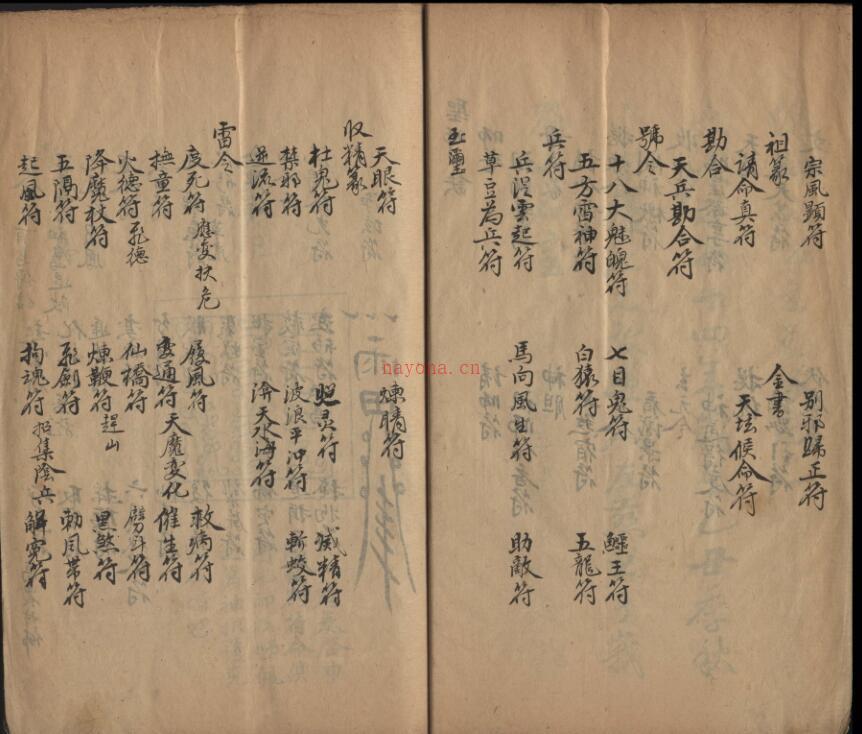 宗風顯符 別邪歸正符
祖篆 金書
請命真符 天坛候命符
勘合
天兵勘合符
號令
十八大魅魄符 七目鬼符 鱷王符
五方雷神符 白猿符 五龍符
兵符
兵浞雲起符 馬向風生符 助敵符
草豆為兵符
玉璽
天眼符 煉睛符
収精篆
杜鬼符 照灵符 滅精符
禁邪符 波浪平沖符 斬蛟符
逆流符 渰天水海符
雷令
度死符 應变扶危 履風符 救病符
撫童符 变通符 天魔变化 催生符
火德符 飛德 仙橋符 劈斗符
降魔杖符 煉鞭符 趕山 黑煞符
五隔符 飛劍符 勅風帯符
起風符 拘魂符 招集陰兵 解寃符
nayona.cn